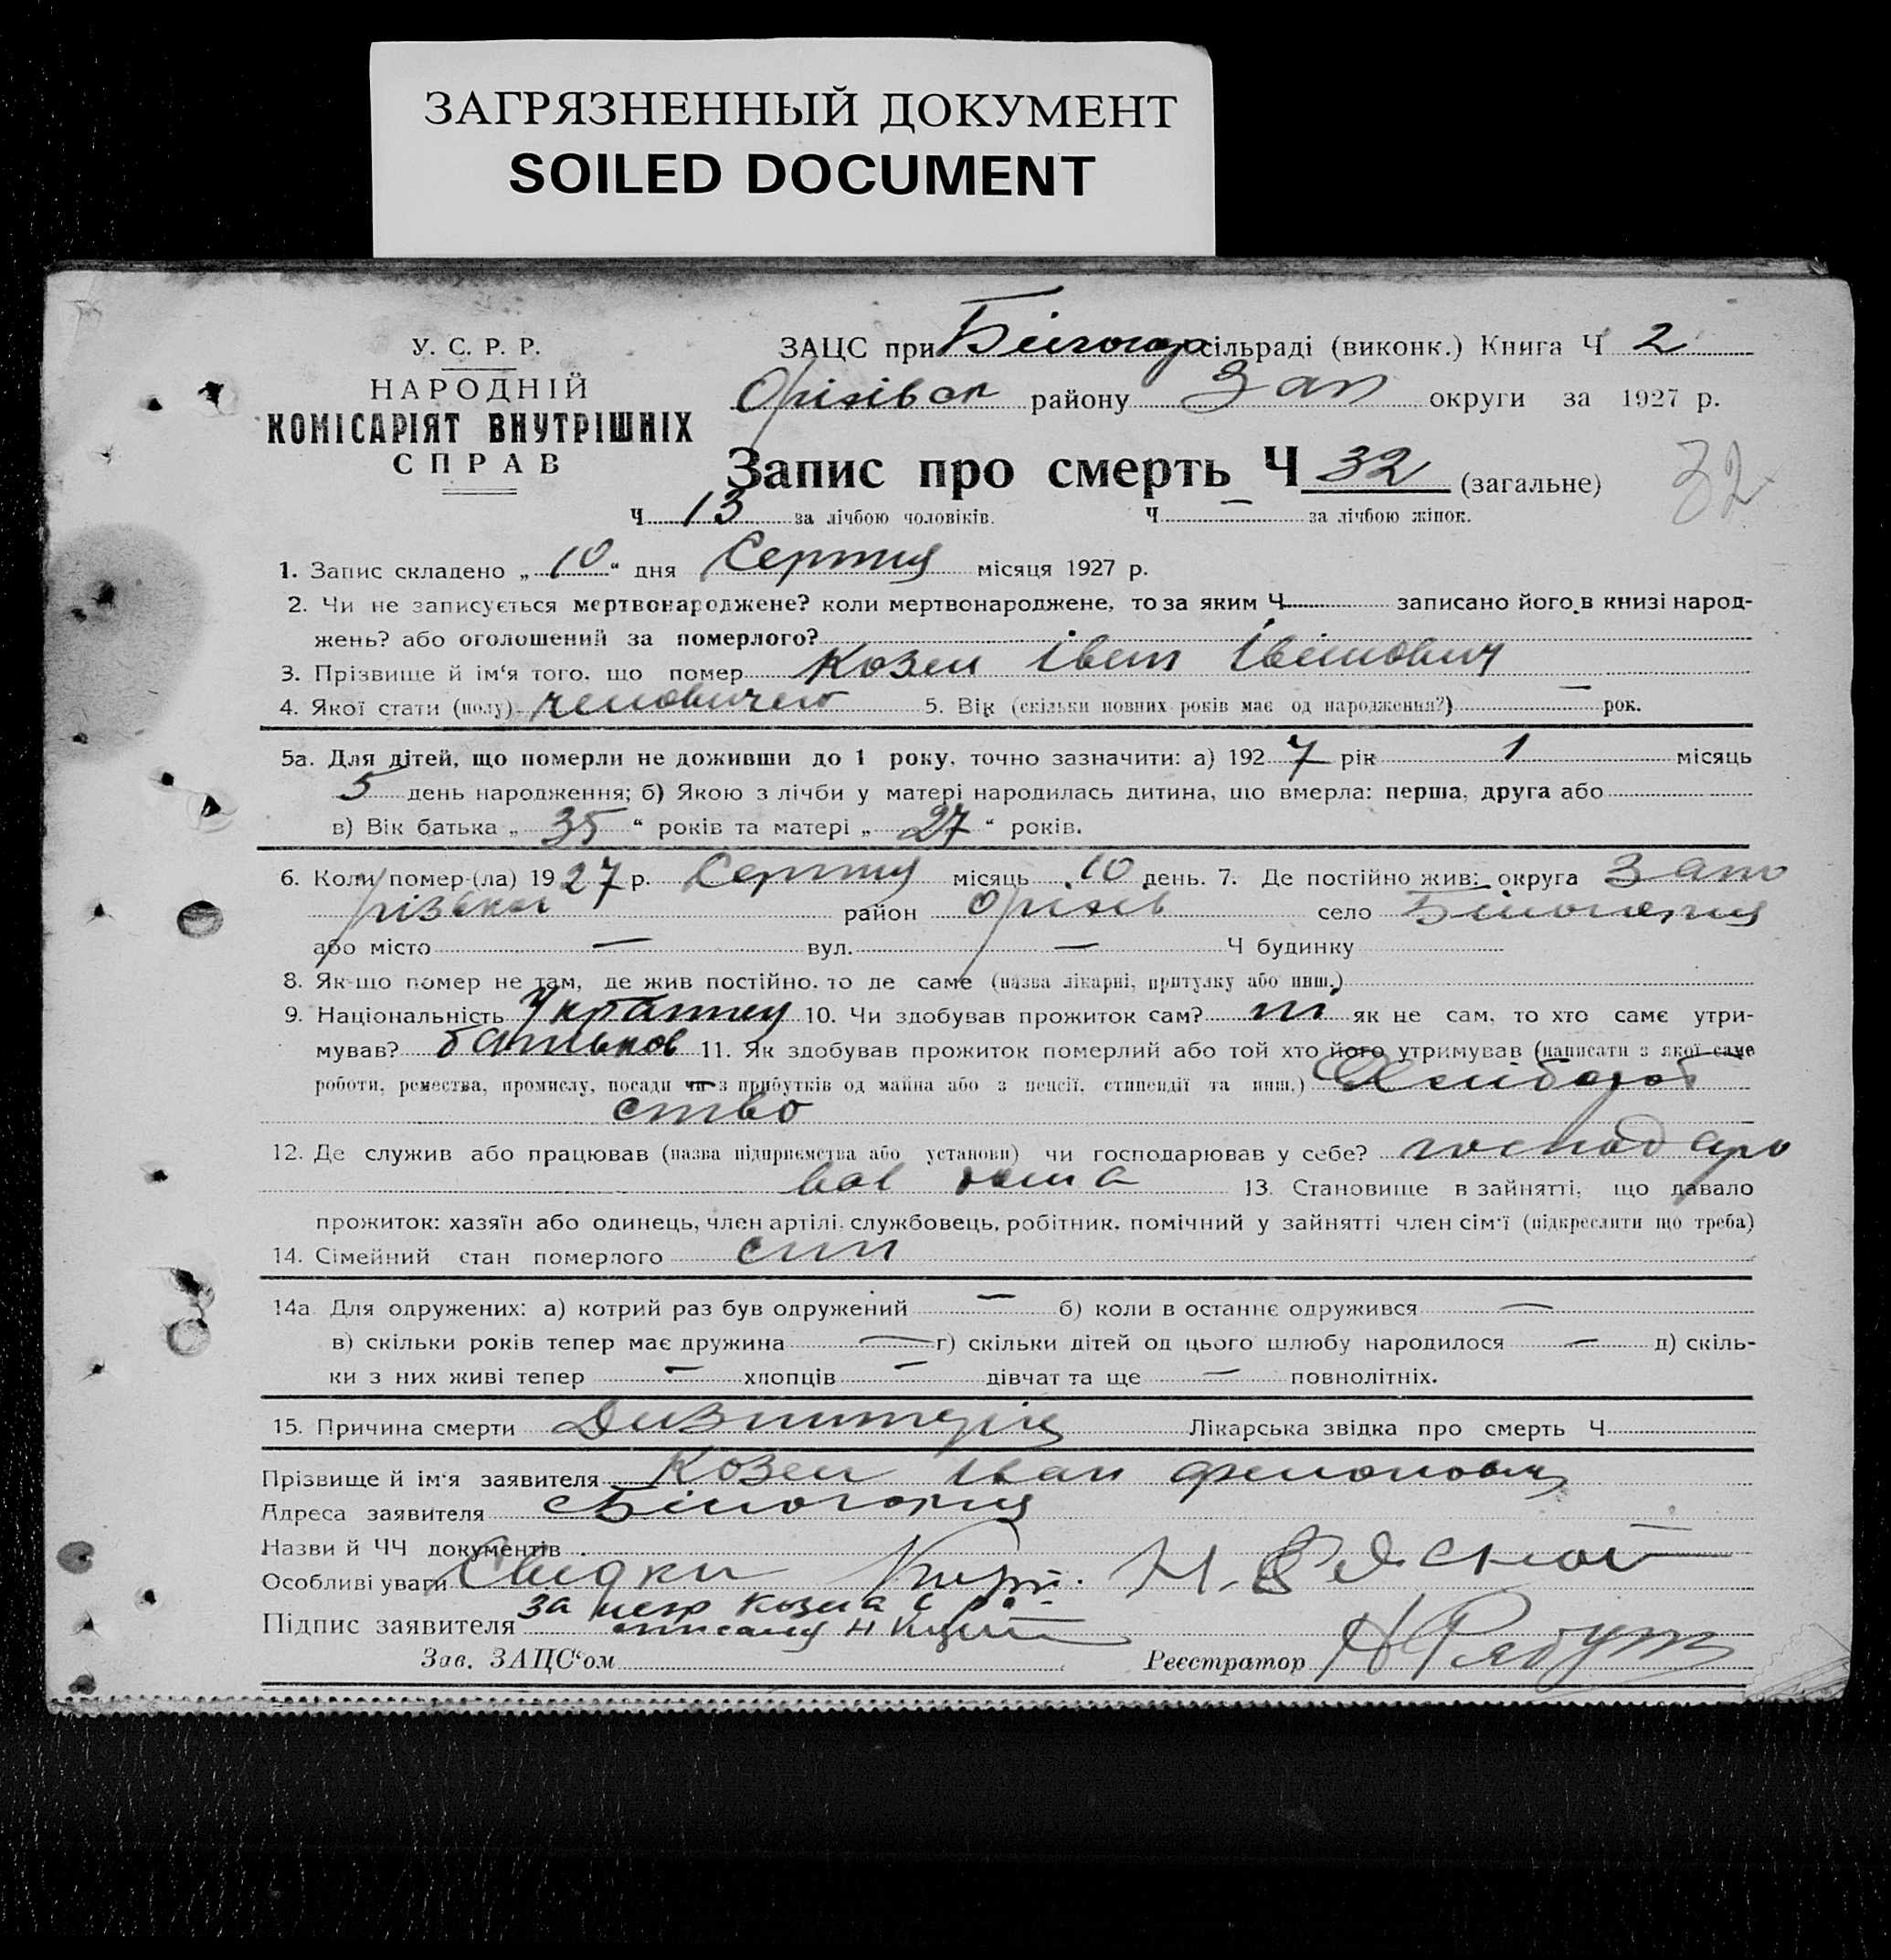 ЗАГРЯЗНЕННЫЙ ДОКУМЕНТ
SOILED DOCUMENT
У. С. Р. Р.
НАРОДНІЙ
КОМІСАРІЯТ ВНУТРІШНІХ
СПРАВ
ЗАЦС при Білогор сільраді (виконк.) Книга Ч 2
Оріхівск району Зап округи за 1927 р.
Запис про смерть Ч 32 (загальне) 32
Ч 13 за лічбою чоловіків. Ч — за лічбою жінок.
1. Запис складено „ 10 “ дня Серпня місяця 1927 р.
2. Чи не записується мертвонароджене? коли мертвонароджене, то за яким Ч записано його в книзі народ-
жень? або оголошений за померлого?
3. Прізвище й ім‘я того, що помер Козел Іван Іванович
4. Якої стати (полу) чоловичею 5. Вік (скільки повних років має од народження?) — рок.
5а. Для дітей, що померли не доживши до 1 року, точно зазначити: а) 1927 рік 1 місяць
5 день народження; б) Якою з лічби у матері народилась дитина, що вмерла: перша, друга або
в) Вік батька „ 35 “ років та матері „ 27 “ років.
6. Коли помер-(ла) 1927 р. Серпня місяць 10 день. 7. Де постійно жив: округа Запо
різька район Оріхів село Білогорня
або місто — вул. — Ч будинку
8. Як-що помер не там, де жив постійно, то де саме (назва лікарні, притулку або инш.)
9. Національність Українец 10. Чи здобував прожиток сам? ні як не сам, то хто саме утри-
мував? батьков 11. Як здобував прожиток померлий або той хто його утримував (написати з якої саме
роботи, ремества, промислу, посади чи з прибутків од майна або з пенсії, стипендії та инш.) Хлібороб
ство
12. Де служив або працював (назва підприємства або установи) чи господарював у себе? господарю
вав дома 13. Становище в зайнятті, що давало
прожиток: хазяїн або одинець, член артілі, службовець, робітник, помічний у зайнятті член сім‘ї (підкреслити що треба)
14. Сімейний стан померлого син
14а Для одружених: а) котрий раз був одружений — б) коли в останнє одружився —
в) скільки років тепер має дружина — г) скільки дітей од цього шлюбу народилося — д) скіль-
ки з них живі тепер — хлопців — дівчат та ще — повнолітніх.
15. Причина смерти Дизинтерія Лікарська звідка про смерть Ч
Прізвище й ім‘я заявителя Козел Іван Филонович
Адреса заявителя Білогорня
Назви й ЧЧ документів
Особливі уваги Свидки
Підпис заявителя за негр Козела
Зав. ЗАЦС‘ом Реєстратор